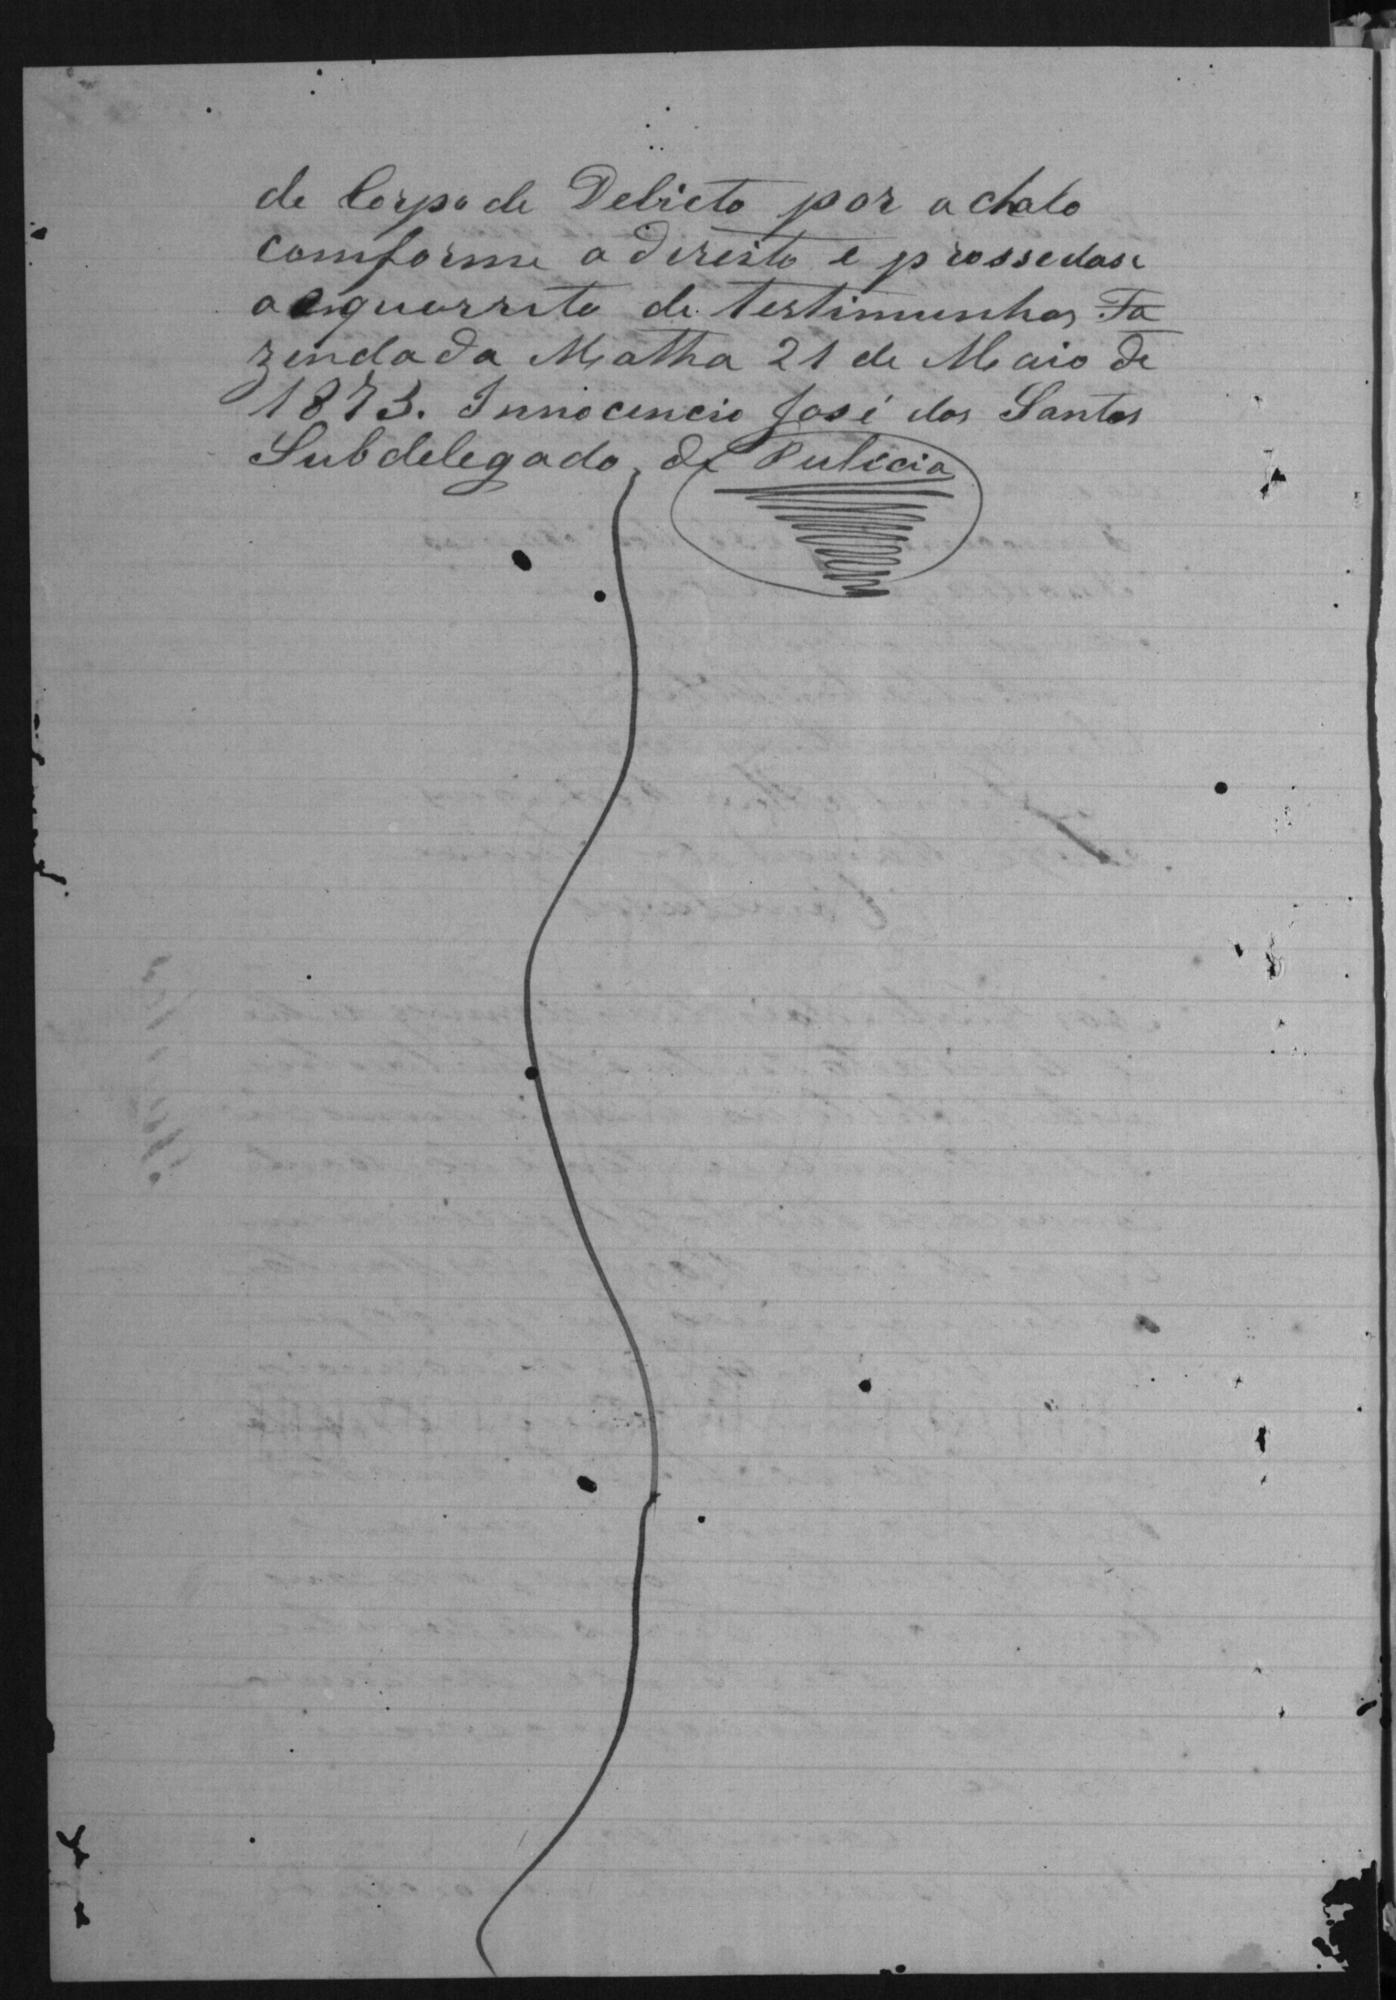 de Corpo de Delicto por achalo
comforme a direito e prossedase
a enquerrito de testimunhas Fa
zenda da Matha 21 de Maio de
1873. Innocencio José dos Santos
Subdelegado de Pulicia